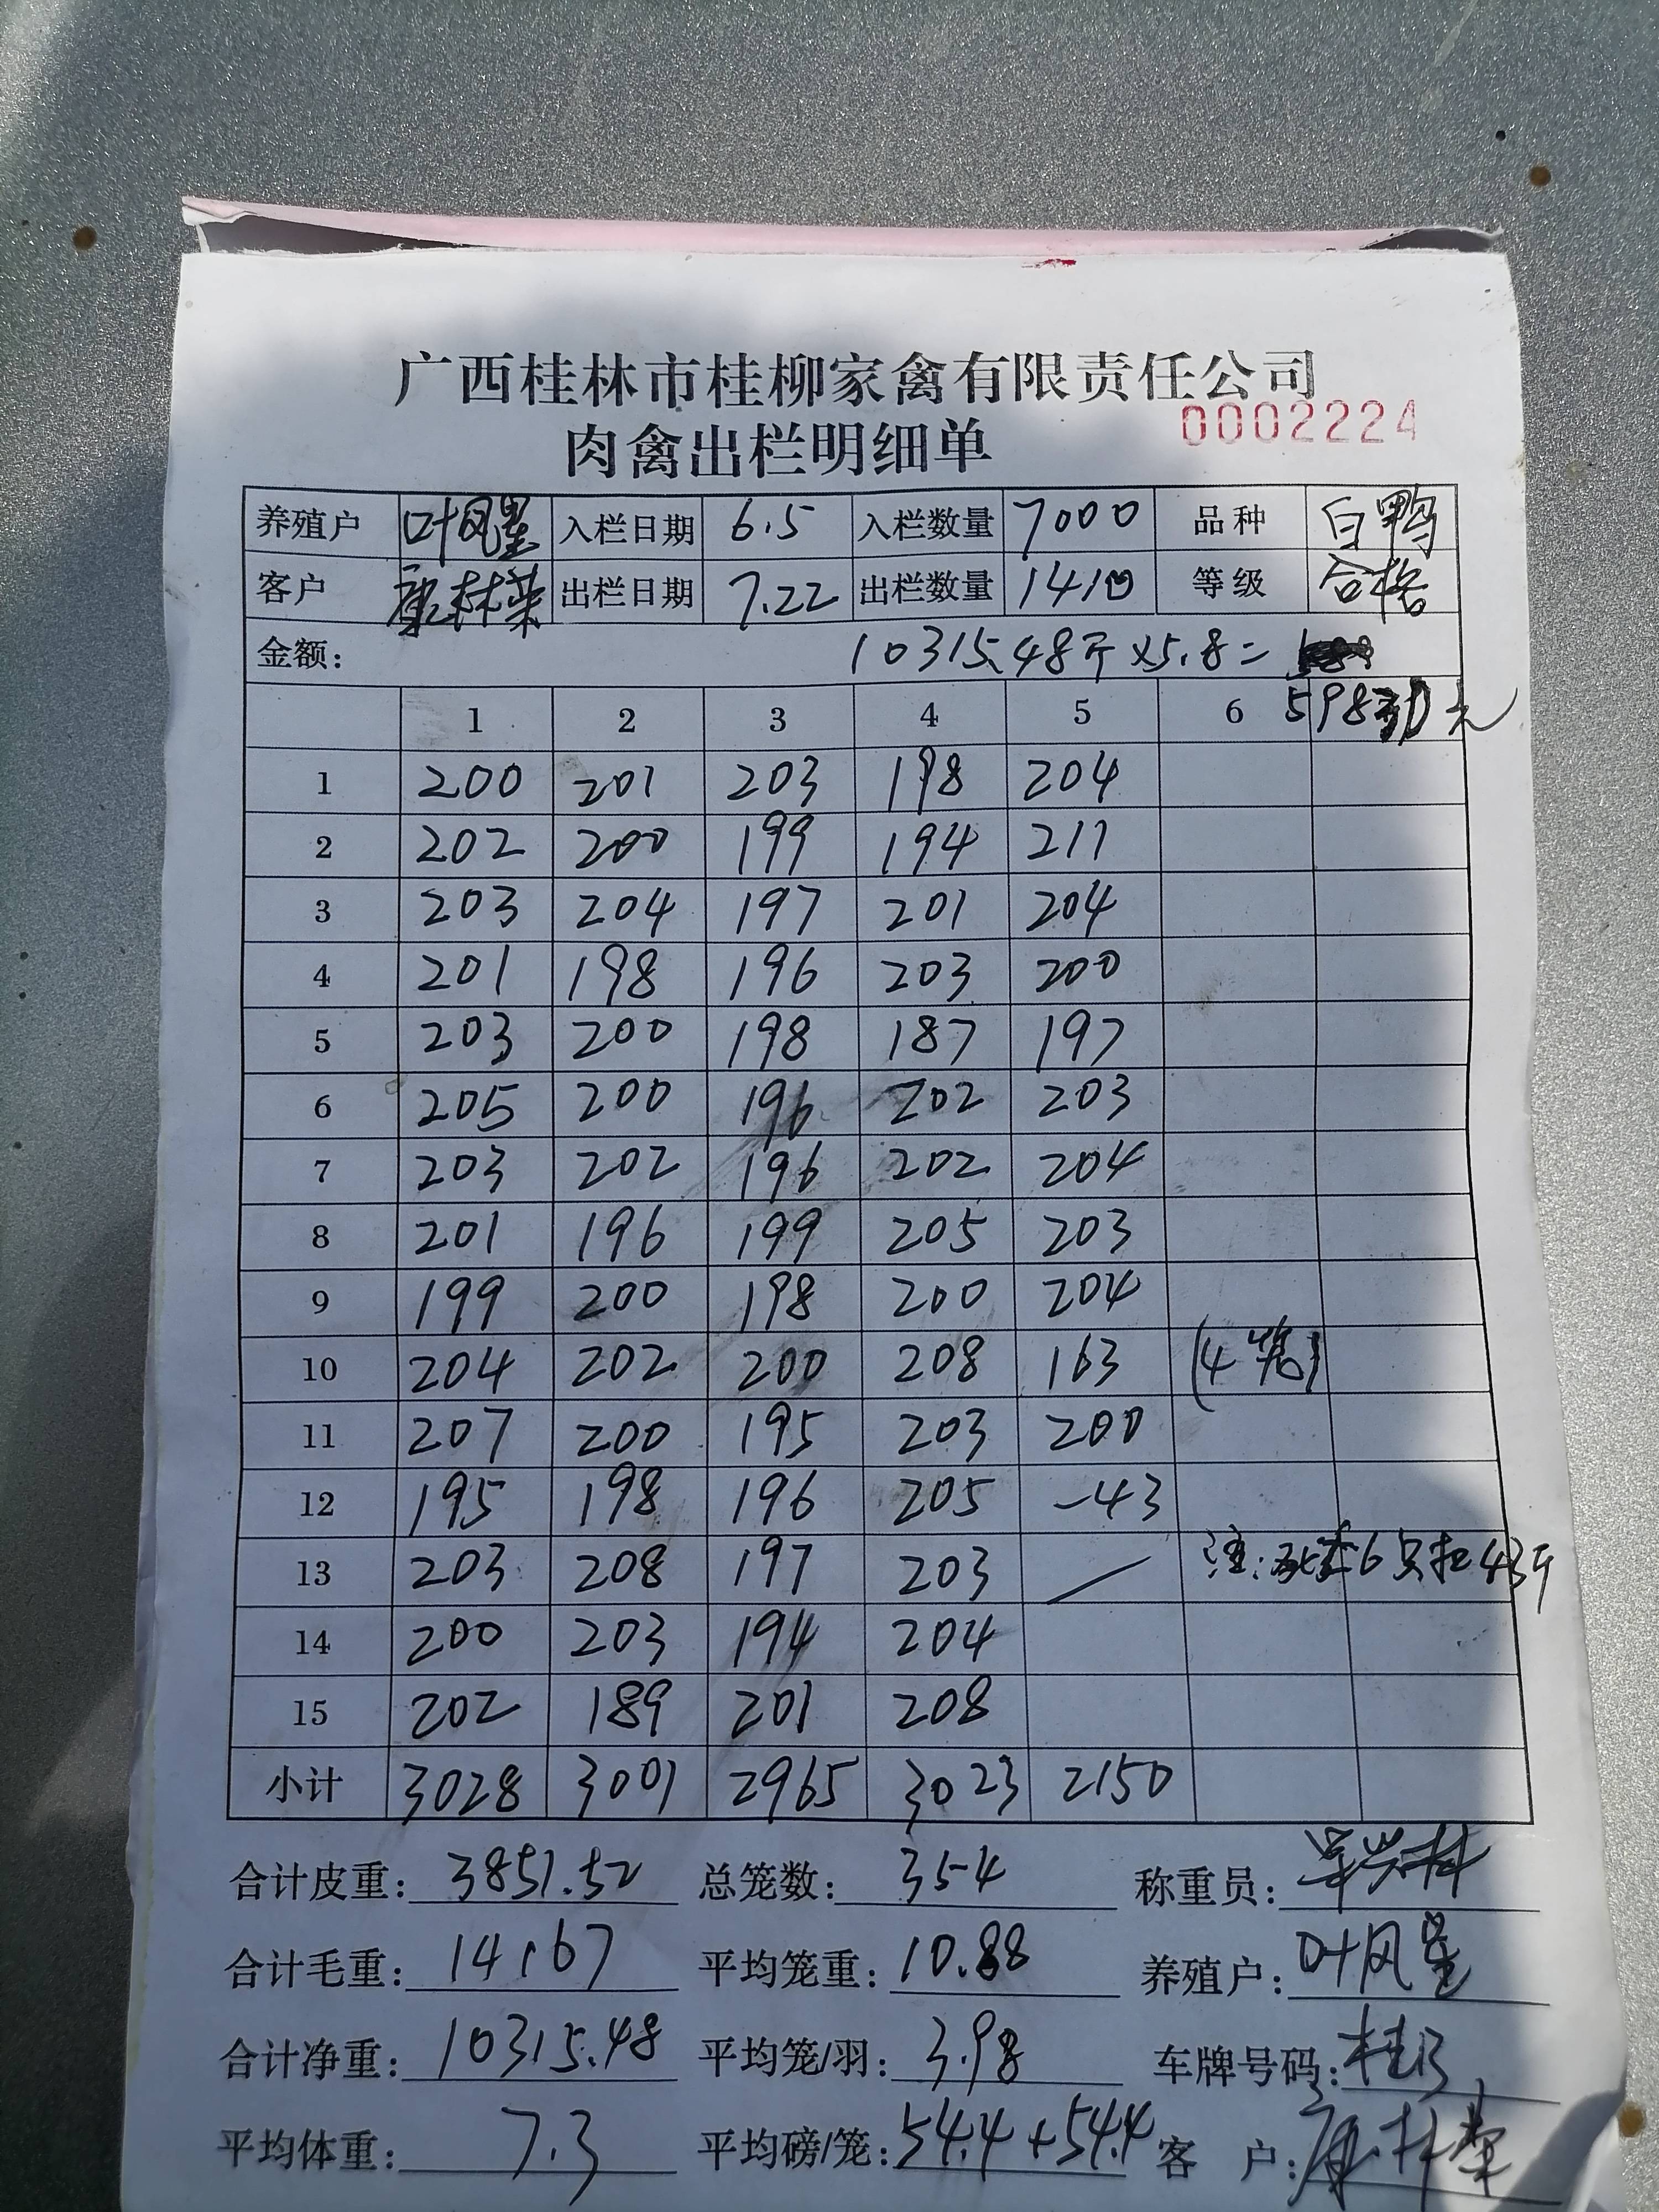 广西桂林市桂柳家禽有限责任公司
肉禽出栏明细单 0002224
养殖户 叶凤星 入栏日期 6.5 入栏数量 7000 品种 白鸭
客户 康林荣 出栏日期 7.22 出栏数量 1410 等级 合格
金额: 10315.48斤×5.8=
1 2 3 4 5 6 元
1 200 201 203 198 204
2 202 200 199 194 211
3 203 204 197 201 204
4 201 198 196 203 200
5 203 200 198 187 197
6 205 200 196 202 203
7 203 202 196 202 204
8 201 196 199 205 203
9 199 200 198 200 204
10 204 202 200 208 163 (4笼)
11 207 200 195 203 200
12 195 198 196 205 -43
13 203 208 197 203 / 注:死 6只扣43斤
14 200 203 194 204
15 202 189 201 208
小计 3028 3001 2965 3023 2150
合计皮重: 3851.52 总笼数: 354 称重员:
合计毛重: 14167 平均笼重: 10.88 养殖户: 叶凤星
合计净重: 10315.48 平均笼/羽: 3.98 车牌号码: 桂
平均体重: 7.3 平均磅/笼: 54.4+54.4 客 户: 康林荣